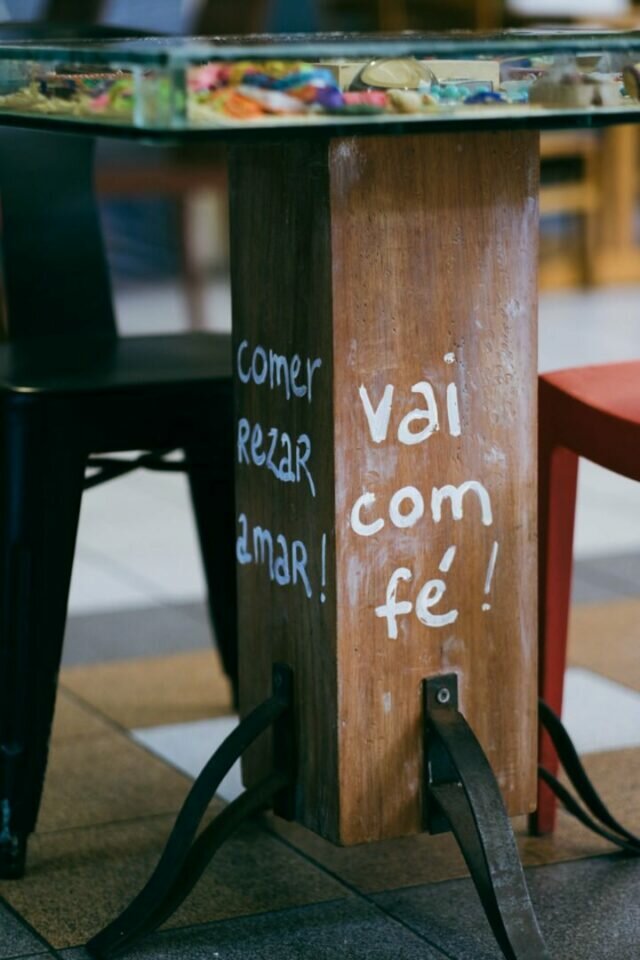 comer
REZAR
amar!
Vai
com
fé!